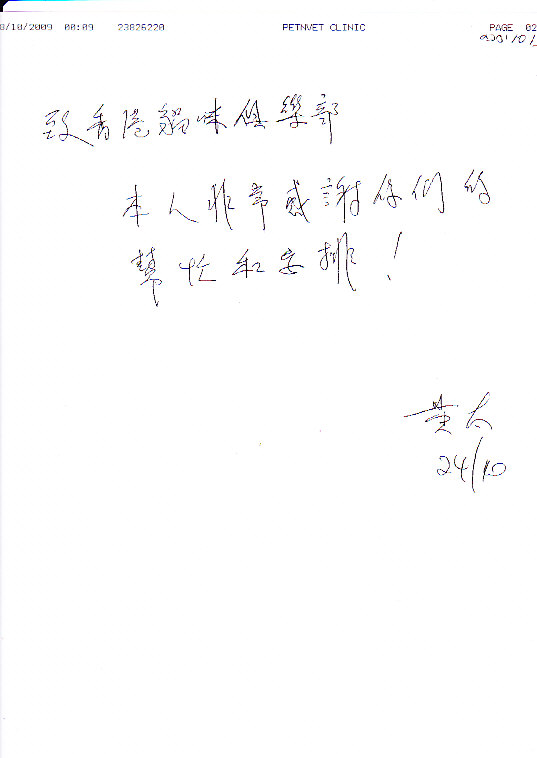 8/10/2009 00:09 23826220 PETNVET CLINIC PAGE 02
致香港貓咪俱樂部
本人非常感謝你們的
幫忙和安排！
黃太
24/10